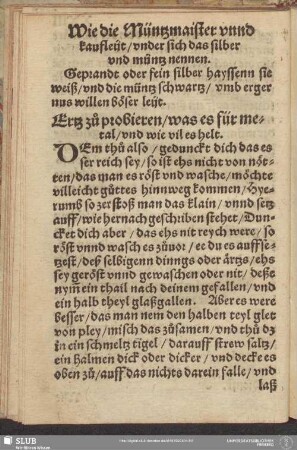 Wie die Müntzmaister vnnd
kauffleüt / vnder sich das silber
vnd müntz nennen.
Geprandt oder fein silber hayssenn sie
weiß / vnd die müntz schwartz / vmb erger
nus willen böser leüt.
Ertz zů probieren / was es für me-
tal / vnd wie vil es helt.
DEm thů also / geduncft dich das es
ser reich sey / so ist ehs nicht von nöt-
ten / das man es röst vnd wasche / möchte
villeicht güttes hinnweg kommen / Hye-
rumb so zerstoß man das klain / vnnd setz
auff / wie hernach geschriben stehet / Dun-
cket dich aber / das ehs nit reych were / so
röst vnnd wasch es züuor / ee du es auffse-
tzest / deß selbigenn dinngs oder ärtzs / ehs
sey geröst vnnd gewaschen oder nit / deße
nym̃ ein thail nach deinem gefallen / vnd
ein halb theyl glaßgallen. Aber es were
besser / das man nem den halben teyl glet
von pley / misch das züsamen / vnd thů dz
in ein schmeltz tigel / darauff strew saltz /
ein halmen dick oder dicker / vnd decke es
oben zů / auff das nichts darein falle / vnd
laß
SLUB